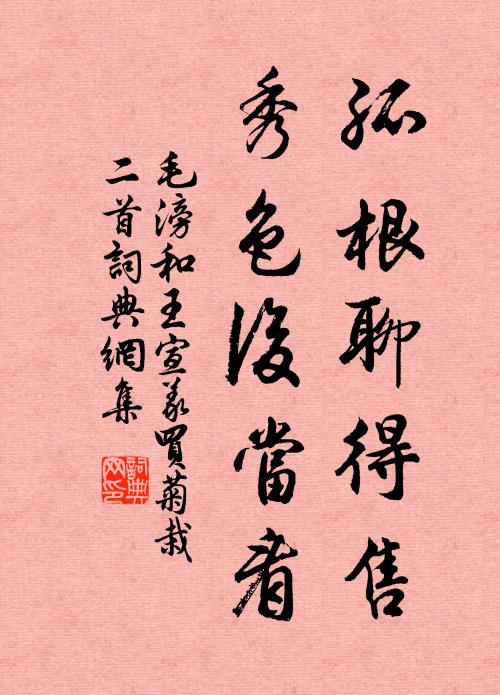 孤根聊得售
秀色後當看
毛滂和王宣義買菊栽
二首詞典網集
詞典
网印